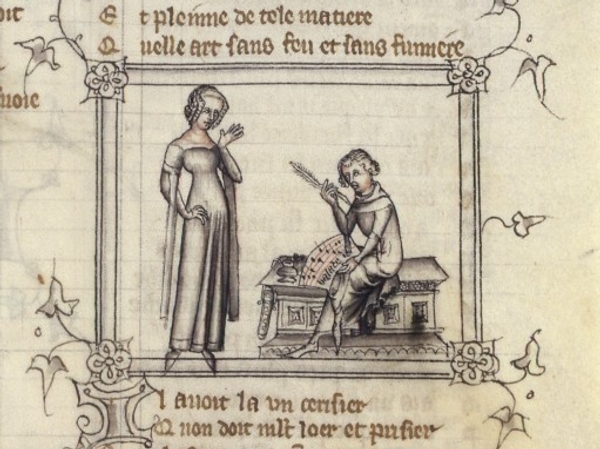 oit
E t pleinne de tele matiere
Q uelle art sans feu et sans fumiere
uoie
I l auoit la vn cerisier
non doit mlt loer et prisier